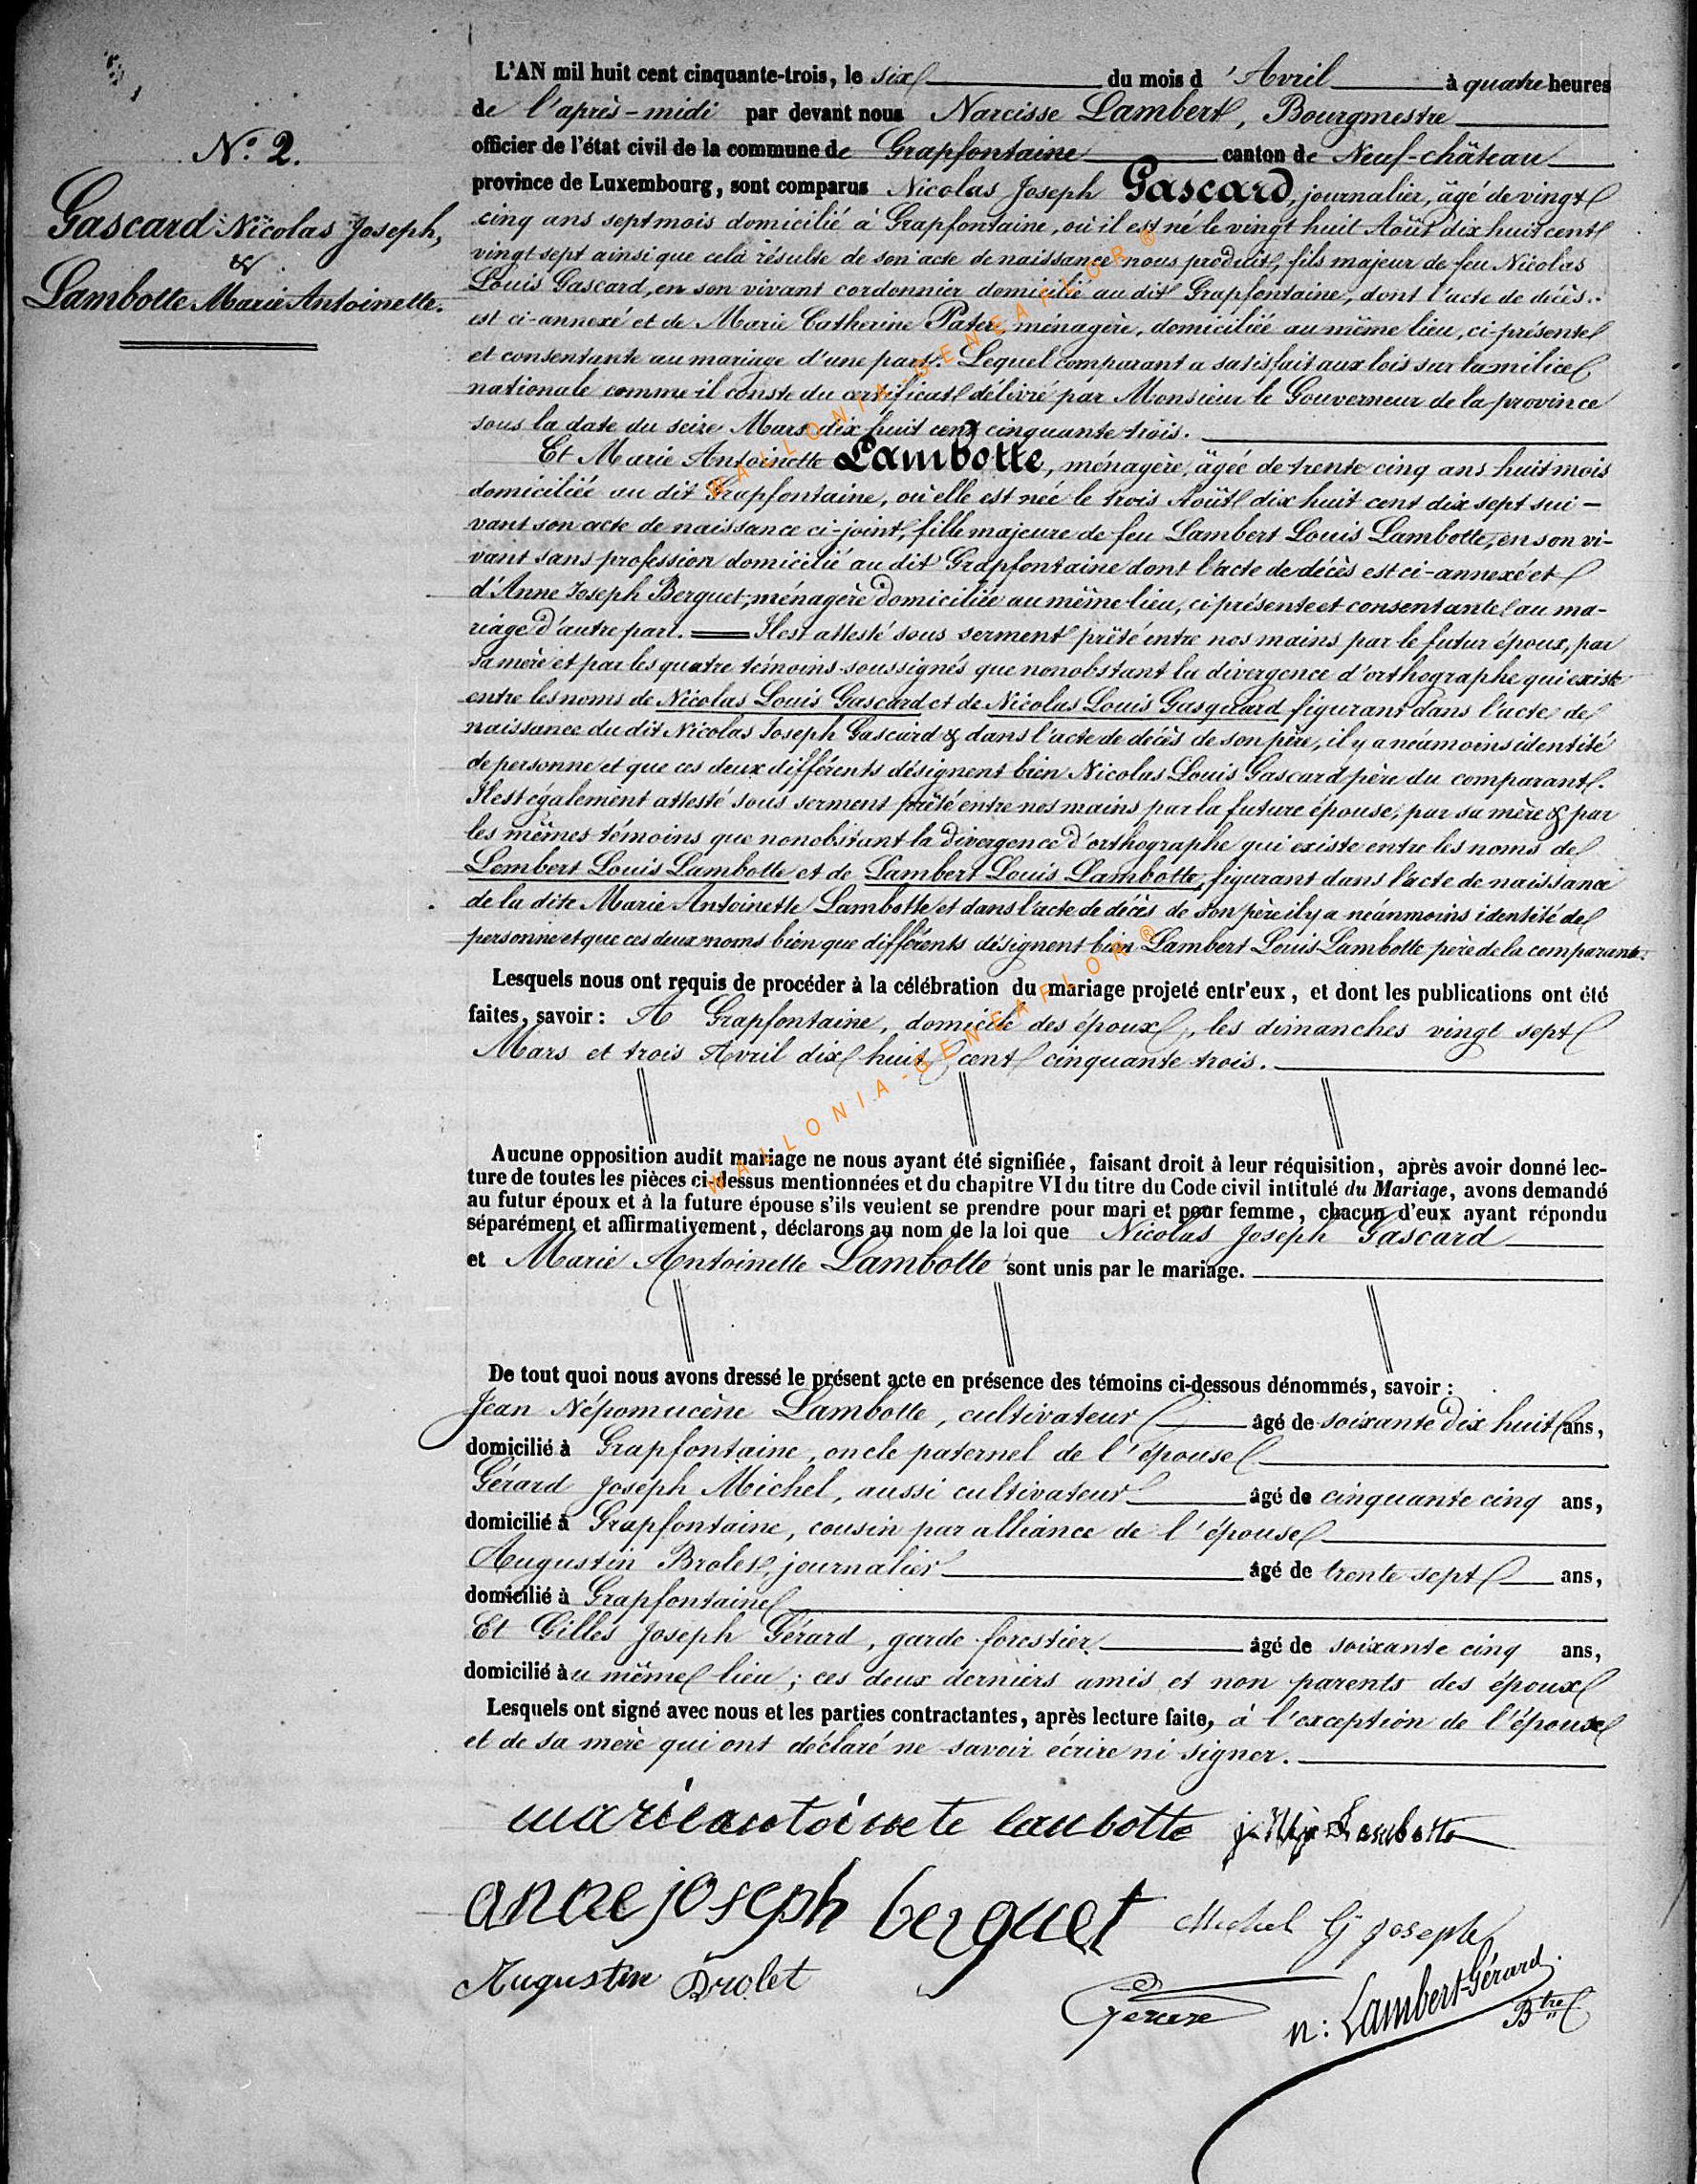 N.º 2.
Gascard Nicolas Joseph,
&
Lambotte Marie Antoinette.
L'AN mil huit cent cinquante-trois, le six du mois d'Avril à quatre heures
de l'après-midi par devant nous Narcisse Lambert, Bourgmestre
officier de l'état civil de la commune de Grapfontaine canton de Neuf-château
province de Luxembourg, sont comparus Nicolas Joseph Gascard, journalier, âgé de vingt
cinq ans sept mois domicilié à Grapfontaine, où il est né le vingt huit Août dix huit cent
vingt sept ainsi que celà résulte de son acte de naissance nous produit, fils majeur de feu Nicolas
Louis Gascard, en son vivant cordonnier domicilié au dit Grapfontaine, dont l'acte de décès
est ci-annexé et de Marie Catherine Pater, ménagère, domiciliée au même lieu, ci-présente
et consentante au mariage d'une part. Lequel comparant a satisfait aux lois sur la milice
nationale comme il conste du certificat délivré par Monsieur le Gouverneur de la province
sous la date du seize Mars dix huit cent cinquante trois.
Et Marie Antoinette Lambotte, ménagère, âgée de trente cinq ans huit mois
domiciliée au dit Grapfontaine, où elle est née le trois Août dix huit cent dix sept sui-
vant son acte de naissance ci-joint, fille majeure de feu Lambert Louis Lambotte, en son vi-
vant sans profession domicilié au dit Grapfontaine dont l'acte de décès est ci-annexé et
d'Anne Joseph Berguet, ménagère domiciliée au même lieu, ci présente et consentante au ma-
riage d'autre part. Il est attesté sous serment prêté entre nos mains par le futur époux, par
sa mère et par les quatre témoins soussignés que nonobstant la divergence d'orthographe qui existe
entre les noms de Nicolas Louis Gascard et de Nicolas Louis Gasquard figurant dans l'acte de
naissance du dit Nicolas Joseph Gascard & dans l'acte de decès de son père, il y a néamoins identité
de personne et que ces deux différents désignent bien Nicolas Louis Gascard père du comparant.
Il est également attesté sous serment prêté entre nos mains par la future épouse, par sa mère & par
les mêmes témoins que nonobstant la divergence d'orthographe qui existe entre les noms de
Lembert Louis Lambotte et de Lambert Louis Lambotte, figurant dans l'acte de naissance
de la dite Marie Antoinette Lambotte et dans l'acte de décès de son père il y a néanmoins identité de
personne et que ces deux noms bien que différents désignent bien Lambert Louis Lambotte père de la comparante.
Lesquels nous ont requis de procéder à la célébration du mariage projeté entr'eux, et dont les publications ont été
faites, savoir : A Grapfontaine, domicile des époux, les dimanches vingt sept
Mars et trois Avril dix huit cent cinquante trois.
Aucune opposition audit mariage ne nous ayant été signifiée, faisant droit à leur réquisition, après avoir donné lec-
ture de toutes les pièces ci-dessus mentionnées et du chapitre VI du titre du Code civil intitulé du Mariage, avons demandé
au futur époux et à la future épouse s'ils veulent se prendre pour mari et pour femme, chacun d'eux ayant répondu
séparément et affirmativement, déclarons au nom de la loi que Nicolas Joseph Gascard
et Marie Antoinette Lambotte sont unis par le mariage.
De tout quoi nous avons dressé le présent acte en présence des témoins ci-dessous dénommés, savoir :
Jean Népomucène Lambotte, cultivateur âgé de soixante dix huit ans,
domicilié à Grapfontaine, oncle paternel de l'épouse
Gérard Joseph Michel, aussi cultivateur âgé de cinquante cinq ans,
domicilié à Grapfontaine, cousin par alliance de l'épouse
Augustin Brolet, journalier âgé de trente sept ans,
domicilié à Grapfontaine
Et Gilles Joseph Gérard, garde forestier âgé de soixante cinq ans,
domicilié au même lieu ; ces deux derniers amis et non parents des époux
Lesquels ont signé avec nous et les parties contractantes, après lecture faite, à l'exception de l'épouse
et de sa mère qui ont déclaré ne savoir écrire ni signer.
marie antoinete lambotte Lambotte
anne joseph berguet Michel G Joseph
Augustin Brolet
Gerard n: Lambert-Gérard.
Btre
WALLONIA-GENEAFLOR ®
WALLONIA-GENEAFLOR ®